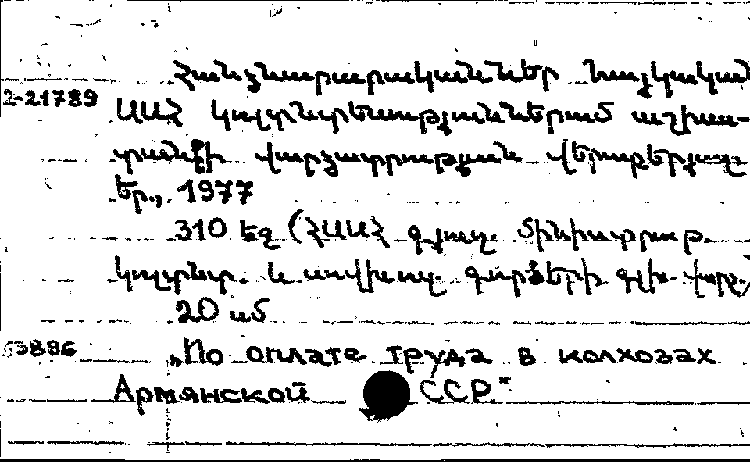 Հանձնարարականներ Հայկական
2-21789 ՍՍՀ կոլտնտեսություններում աշխա-
տանքի վարձատրության վերաբերյալ.
Եր., 1977
310 էջ (ՀՍՍՀ գյուղ. մինիստրութ.
կոլտնտ. և սովխոզ. գործերի գլխ. վարչ.)
20 սմ
63896 „По оплате труда в колхозах
Армянской ССР."